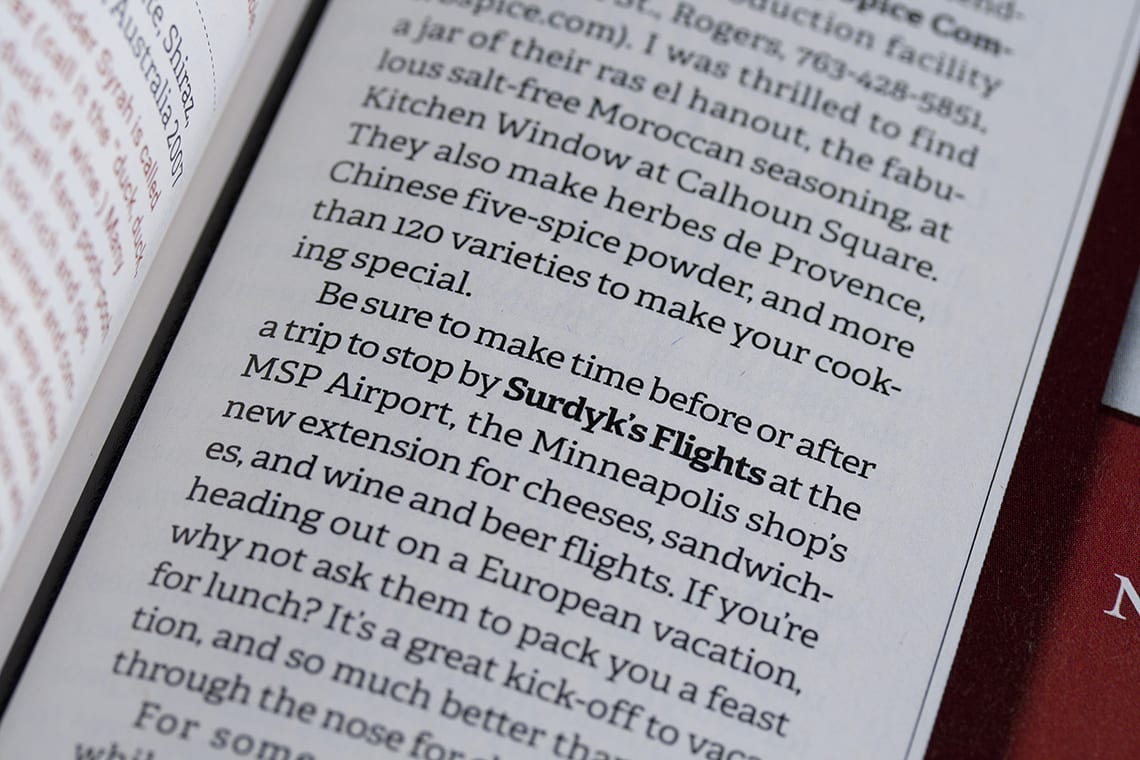 te, Shiraz,
Australia 2007
der Syrah is called
(call it the "duck, duck,
duck" of wine.) Many
Spice Com-
oduction facility
St., Rogers, 763-428-5851,
ospice.com). I was thrilled to find
a jar of their ras el hanout, the fabu-
lous salt-free Moroccan seasoning, at
Kitchen Window at Calhoun Square.
They also make herbes de Provence,
Chinese five-spice powder, and more
than 120 varieties to make your cook-
ing special.
Be sure to make time before or after
a trip to stop by Surdyk's Flights at the
MSP Airport, the Minneapolis shop's
new extension for cheeses, sandwich-
es, and wine and beer flights. If you're
heading out on a European vacation,
why not ask them to pack you a feast
for lunch? It's a great kick-off to vaca-
tion, and so much better than
through the nose for
For some
N